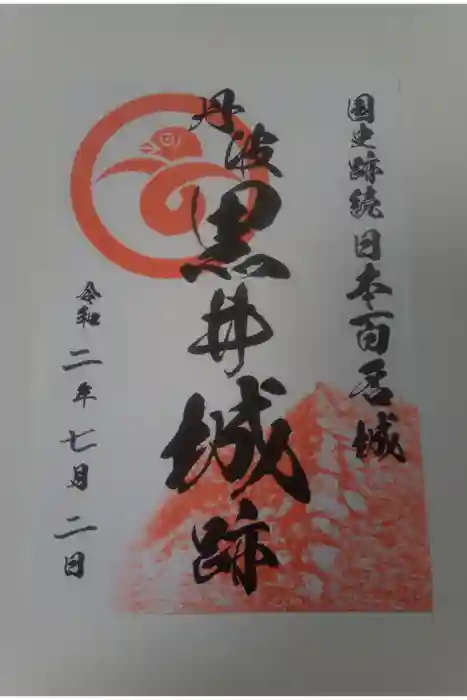 国史跡続日本百名城
丹波黒井城跡
令和二年七月二日